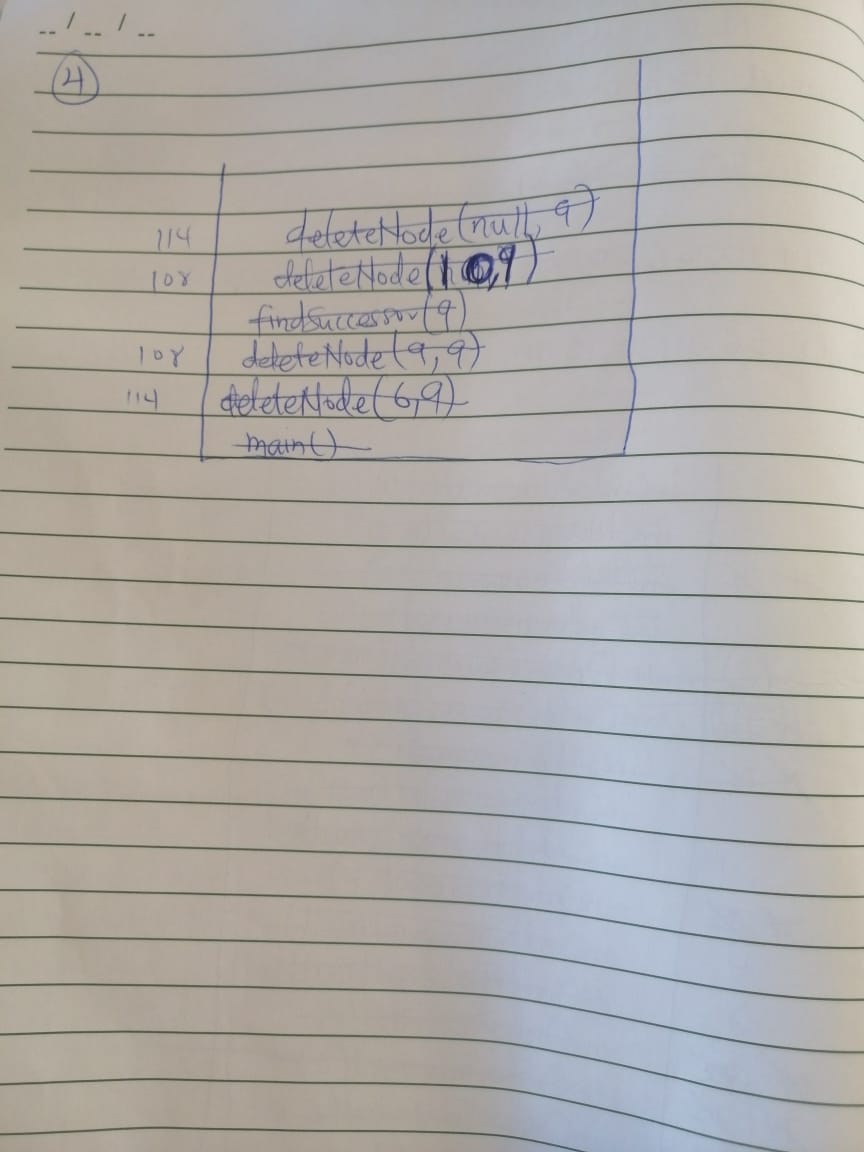 -- / -- / --
4
114 deleteNode(null, 9)
108 deleteNode(10,9)
findSuccessor(9)
108 deleteNode(9,9)
114 deleteNode(6,9)
main()